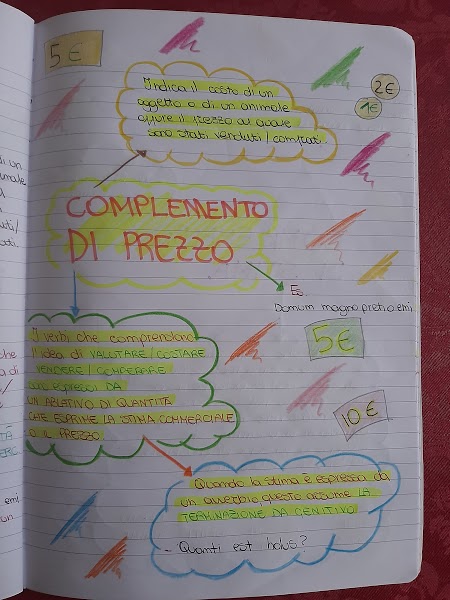 5 €
Indica il costo di un
oggetto o di un animale
oppure il prezzo al quale
sono stati venduti / comprati.
2€
1€
COMPLEMENTO
DI PREZZO
Es.
Domum magno pretio emi
5€
10 €
I verbi che comprendono
l'idea di VALUTARE / COSTARE
VENDERE / COMPERARE
sono espressi DA
UN ABLATIVO DI QUANTITÀ
CHE ESPRIME LA STIMA COMMERCIALE
O IL PREZZO
Quando la stima è espressa da
un avverbio questo assume LA
TERMINAZIONE DA GENITIVO
- Quanti est holus?